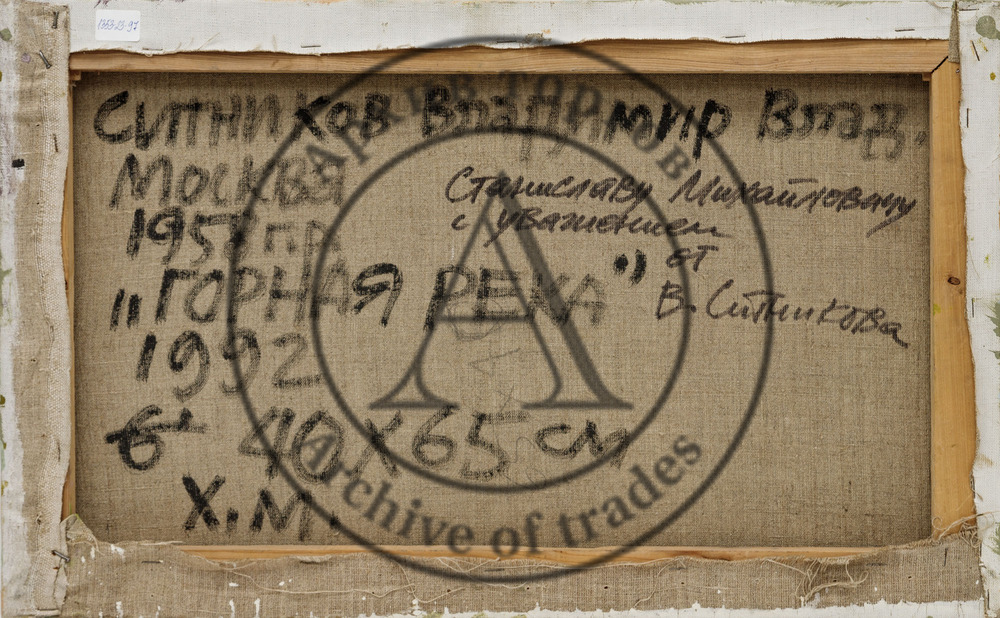 1753-23-97
Ситников Владимир Влад.
Москва
195 г.р.
Станиславу Михайловичу
с уважением
от
В. Ситникова
„ГОРНАЯ РЕКА"
1992
40 х 65 см
Х.М.
Архив торгов
A
Archive of trades